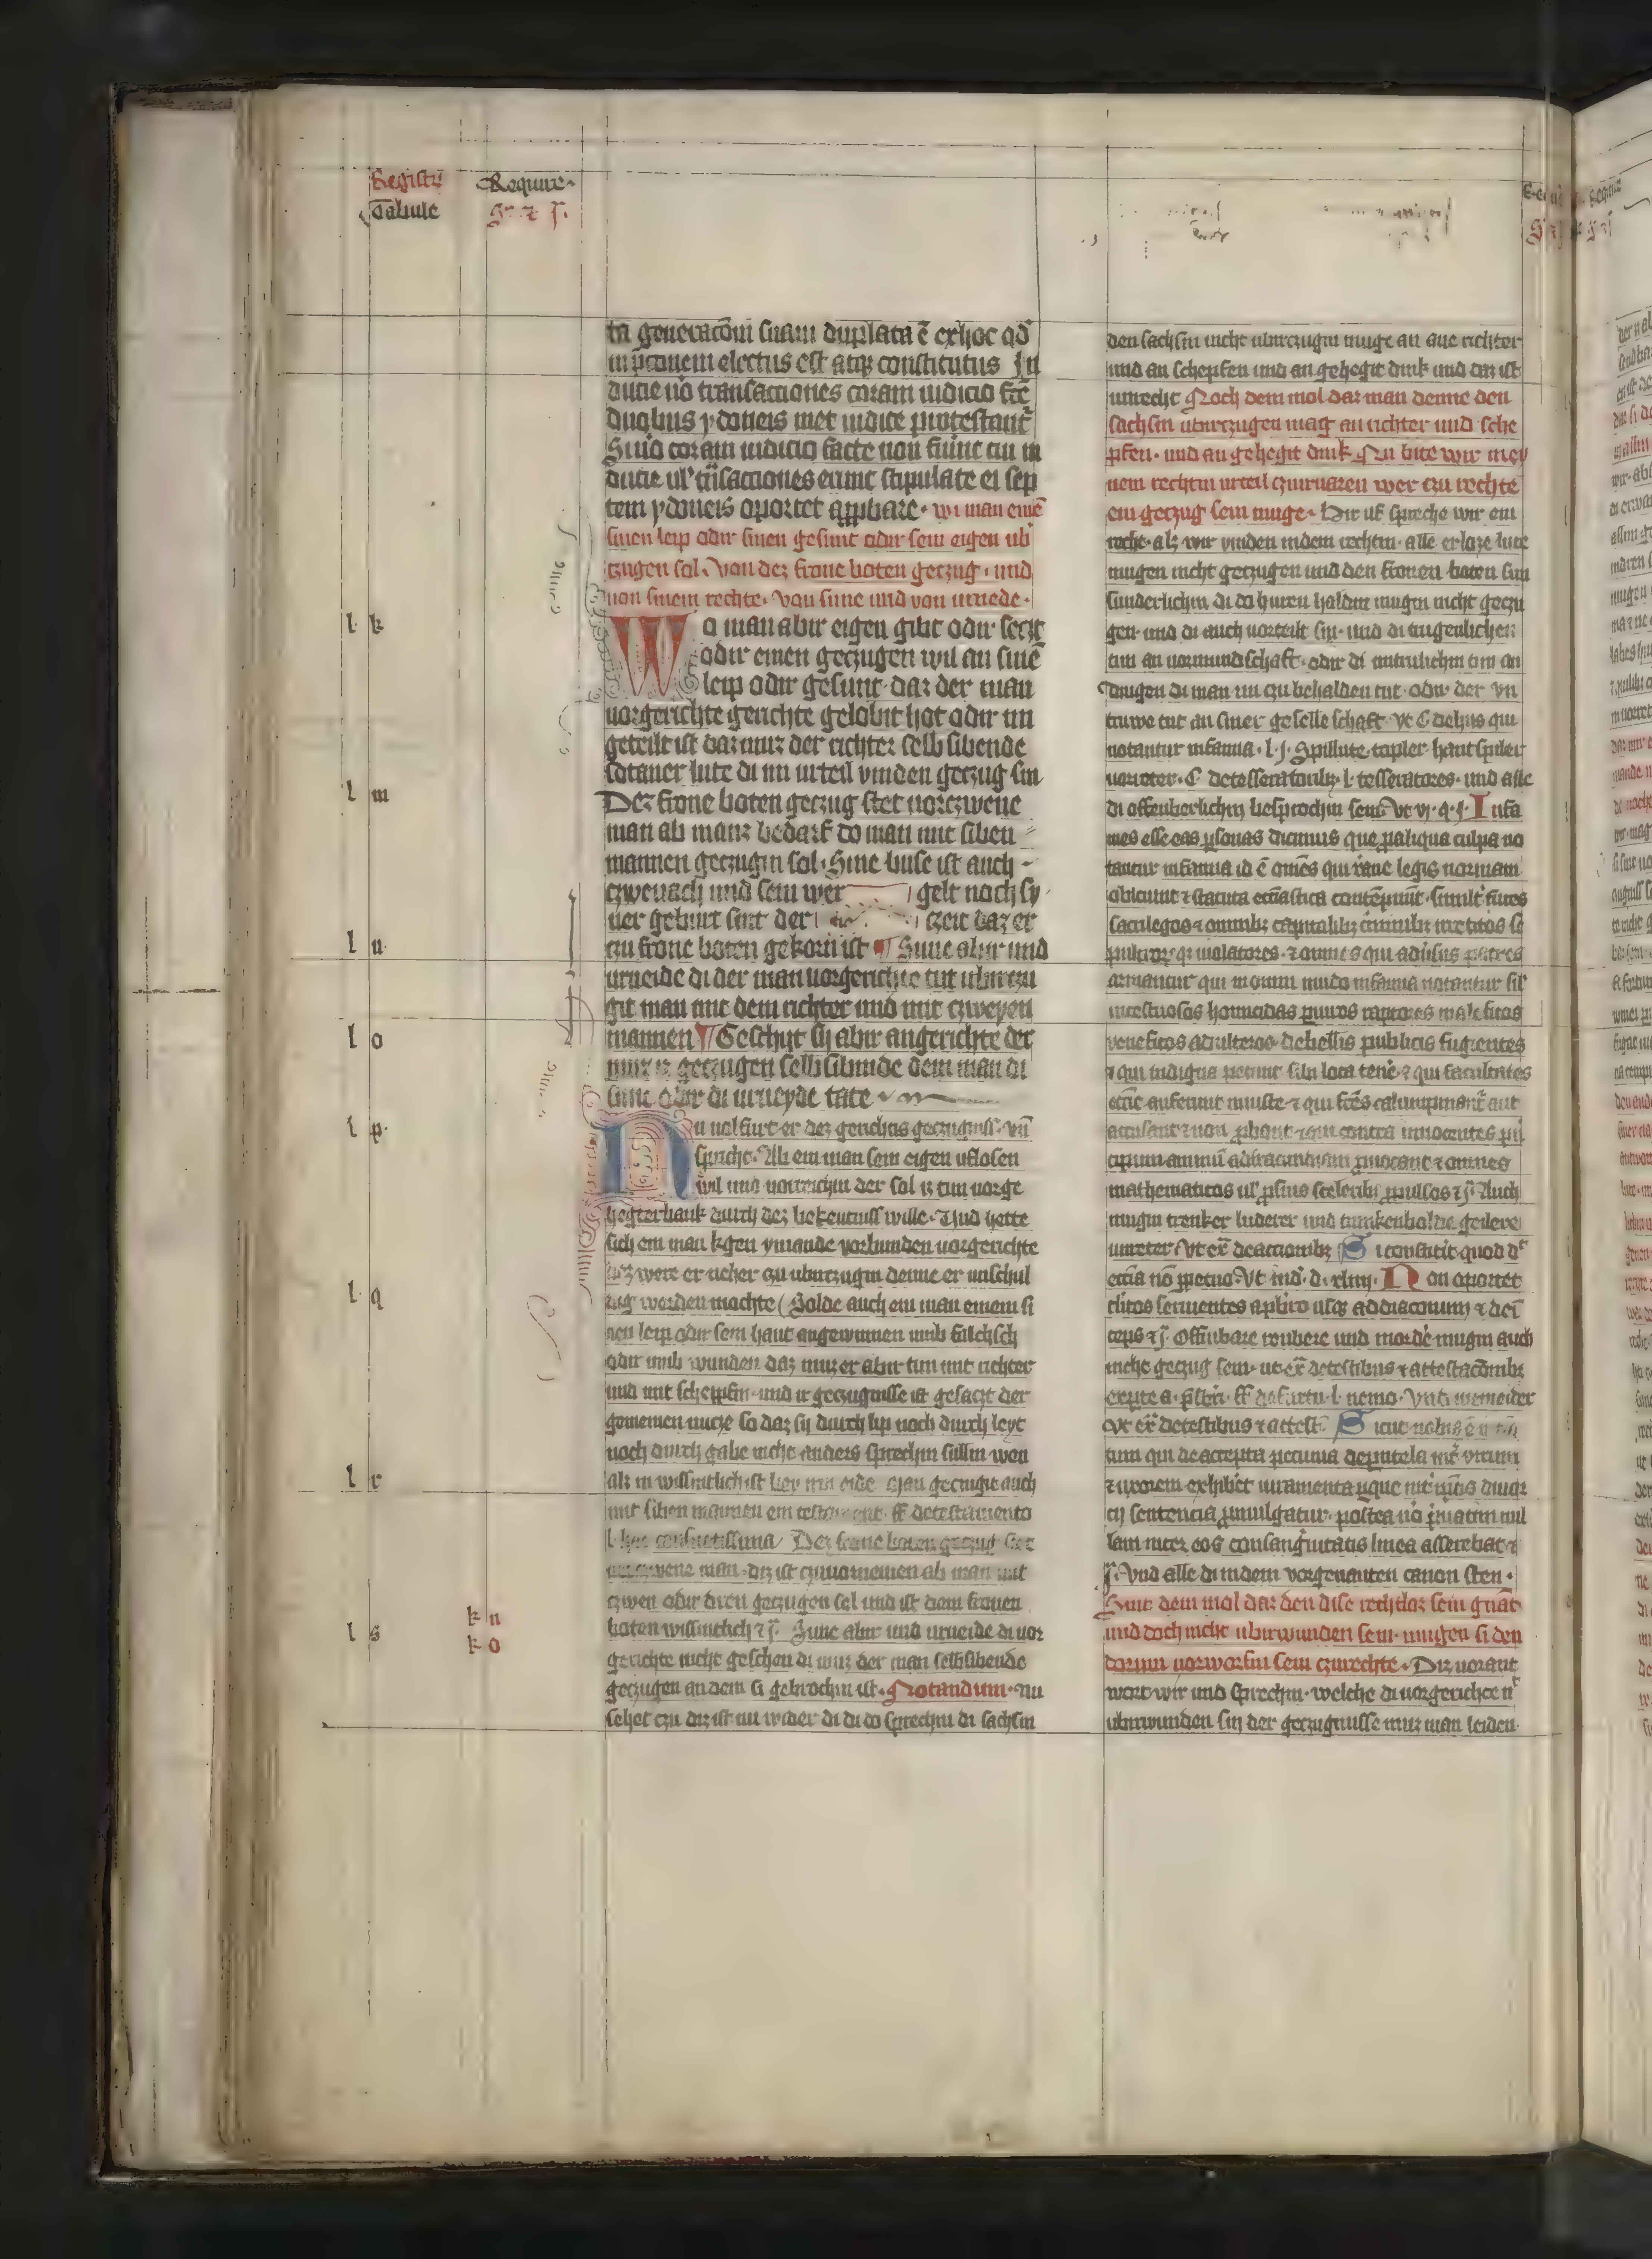 Registrum
Tabule
Require
ta generacōni suam duplata ē exhoc qd
in p̄conem electus est atqꝫ constitutus In
ducie u͞o transactiones coram iudicio fc̄e
duobus ydoneis met iudice protestant᷑
Si u͞o coram iudicio facte non fiunt cū in
ducie ul᷑ trāsactiones erunt stipulate ei sep
tem ydoneis oportet app̄bare · wi man eine
sinen leip odir sinen gesunt odir sein eigen ub
czugen sol · Von dez frone boten geczug · und
uon sinem rechte · von sune und von uruede ·
l k
Wo man abir eigen gibt odir seczt
odir einen geczugen wil an sinē
leip odir gesunt · daz der man
uorgerichte gerichte gelobit hot odir im
geteilt ist daz muz der richter selb sibende
sotaner lute di im urteil vinden geczug sin
l m
Dez frone boten geczug stet uorczwene
man ab manz bedarf do man mit siben
mannen geczugin sol · Sine buse ist auch
czweuach und sein wer gelt noch sy
ner geburt sint der czeit daz er
l n
czu frone boten gekorn ist ¶ Sune abir und
urueide di der man uorgerichte tut ubirczu
git man mit dem richter und mit czweyen
l o
mannen ¶ Geschyt sy abir angerichte der
muz iz geczugen selbsibinde dem man di
sune odir di urueyde tate
l p
Nu uolfurt er dez gerichtis geczugniss · vn̄
spriche · Ab ein man sein eigen uflosen
wil und uorreichin der sol iz tun uorge
hegter bank durch dez bekentniss wille · Und hette
sich ein man kgen ymande vorbunden uorgerichte
dez were er neher czu ubirczugin denne er unschul
l q
dig werden mochte Solde auch ein man einem si
nen leip odir sein haut angewinnen umb falchsch
odir umb wunden daz muz er abir tun mit richter
und mit scheppfin · und ir geczugnisse ist gesaczt der
gemeinen nucze so daz sy durch lip noch durch leyt
noch durch gabe nicht anders sprechin sullin wen
l r
alz in wissintlich ist bey irm eide Man geczugit auch
mit siben mannen ein testament · ff detestamento
l · hac consultissima Dez frone boten geczug stet
uorczwene man · diz ist czuuorneinen ab man mit
czwen odir dren geczugen sol und ist dem fronen
k n
l s
boten wissintlich ⁊ j᷑ · Sune abir und urueide di uor
k o
gerichte nicht geschen di muz der man selbsibende
geczugen an dem si gebrochin ist · Notandum · nu
sehet czu diz ist nu wider di di do sprechin di sachsin
den sachsin nicht ubirczugin muge an ane richter
und an schepfen und an gehegit dink und daz ist
unrecht Noch dem mol daz man denne den
sachsin ubirczugen mag an richter und sche
pfen · und an gehegit dink Nu bite wir mey
nem rechtin urteil czuiruaren wer czu rechte
ein geczug sein muge · Hir uf spreche wir ein
recht · alz wir vinden indem rechtin · alle erloze lute
mugen nicht geczugen und den fronen boten sun
sunderlichin di do huren haldin mugin nicht geczu
gen · und di auch uorteilt sin · und di trugenlichen
tun an uormundschaft · odir di untrulichin tun an
dingen di man im czu behalden tut · odir der vn
truwe tut an siner geselleschaft · vt C de his qui
notantur infamia · l · j · Spillute · topler · hantspiler
uorreter · C de tesseratoribꝫ · l · tesseratores · und alle
di offenberlichin besprochin sein · Vt vj · q · j · Infa
mes esse eas p̱sonas dicimus que p̱ aliqua culpa no
tantur infamia id ē om̄es qui xp̄iane legis normam
abiciunt ⁊ statuta ecc̄iastica contēpnūt · similit᷑ fures
sacrilegos ⁊ omnibꝫ capitalibꝫ c̍minibꝫ irretitos se
pulcror̄ qꝫ uiolatores · ⁊ omnes qui adu͛sus patres
armantur qui in omni mundo infamia notantur sil᷑
incestuosos homicidas p̱iuros raptores maleficos
veneficos adulteros · de bellis publicis fugientes
⁊ qui indigna petunt sibi loca tenē ⁊ qui facultates
ecc̄ie auferunt iniuste ⁊ qui fr̄es calumpniant᷑ aut
accusant ⁊ non p̱bant ⁊ qui contra innocentes p̍n
cipum animū ad iracundiam p̱uocant ⁊ omnes
mathematicos ul᷑ p̱ suis sceleribꝫ p̱pulsos ⁊ j᷑ Auch
mugin trenker luderer und trunkenbolde geilere
unreter · Vt ex̄ de accionibꝫ Si constitit quod d᷑
ecc̄ia nō p̱petuo · Vt ind̄ · d · xlvij · Non oportet
cl̍icos seruientes apl̄ico usqꝫ ad diaconum ⁊ dein
ceps ⁊ j᷑ · Offinbare roubere und morder mugin auch
nicht geczug sein · ut ex̄ de testibus ⁊ attestacōnibꝫ
ex parte a · p̄sbr̄i · ff de furtis · l · nemo · Vnd meineider
Vt ex̄ de testibus ⁊ attest̄ · Sicut nobis
tum qui de accepta pecunia de putela int᷑ virum
⁊ uxorem exhibet iuramenta ꝑ que int᷑ ip̄os diuor
cij sentencia p̱mulgatur · postea u͞o p̍uatim nul
lam inter eos consang̍nitatis linea asserebat ⁊
j᷑ · Vnd alle di indem vorgenanten canon sten ·
Sint dem mol daz den dise rechtloz sein gnāt
und doch nicht ubirwunden sein · mugen si den
dorum uorworfin sein czurechte · Diz uorant
wort wir und sprechin · welche di uorgerichte n᷑
ubirwunden sin der geczugnisse muz man leiden